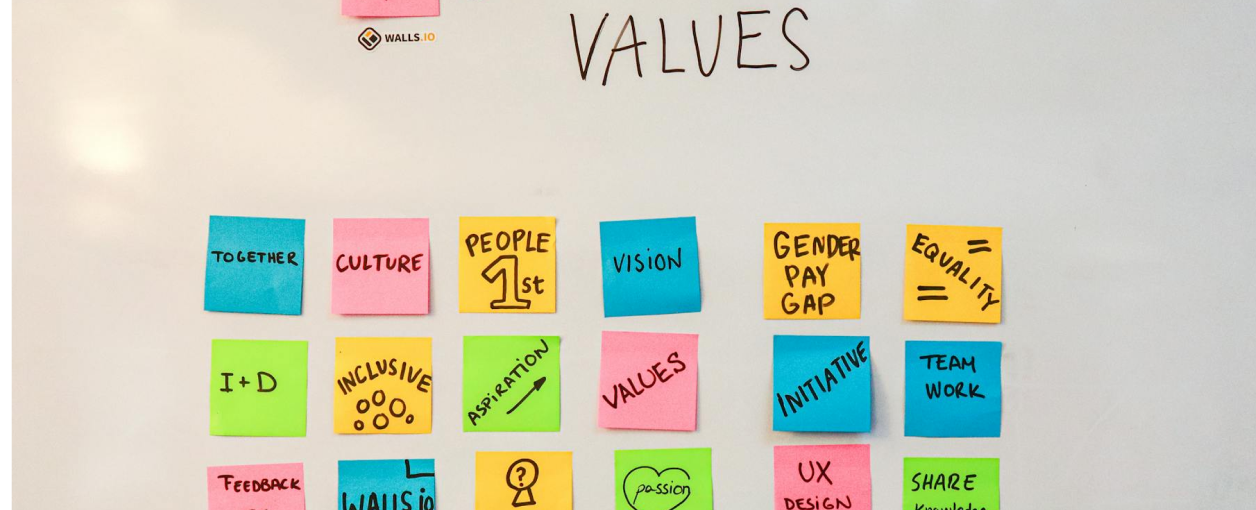 WALLS.IO
VALUES
TOGETHER
CULTURE
PEOPLE
1st
VISION
GENDER
PAY
GAP
= EQUALITY =
I+D
INCLUSIVE
ASPIRATION
VALUES
INITIATIVE
TEAM
WORK
FEEDBACK
WALLS.io
?
passion
UX
DESIGN
SHARE
Knowledge